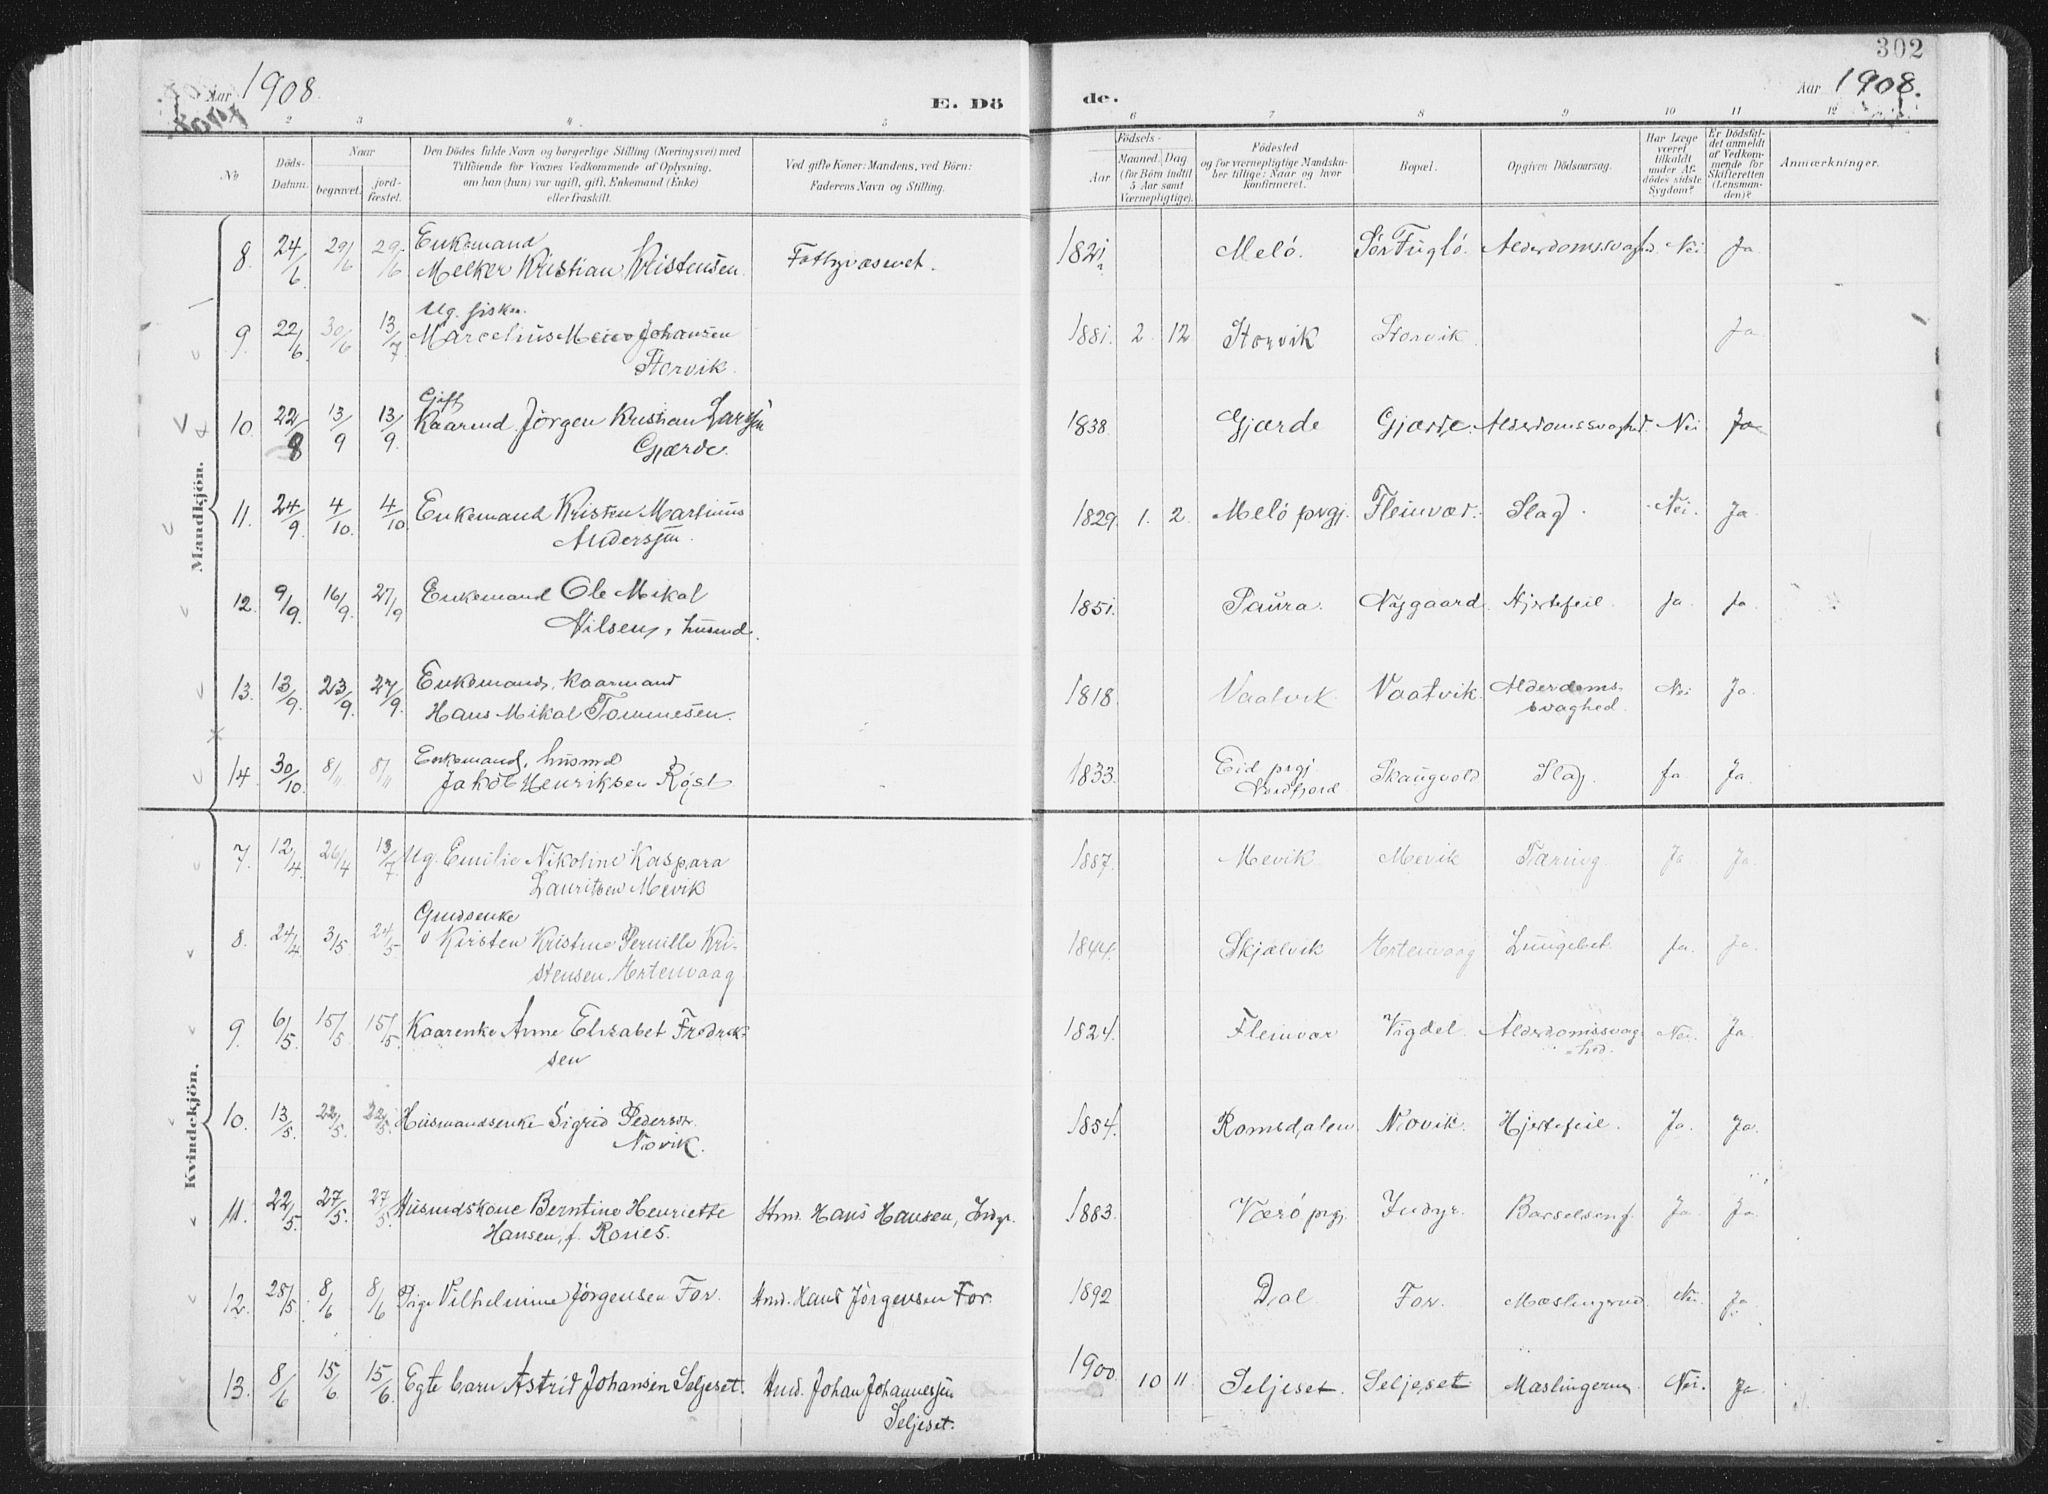 302
Aar 1908. E. Dö
de. Aar 1908.
2 3 4. 5 6 7 8 9 10 11 12
No
Döds-
Datum.
Naar
begravet.
jord-
fæstet.
Den Dödes fulde Navn og borgerlige Stilling (Næringsvei) med
Tilföiende for Voxnes Vedkommende af Oplysning,
om han (hun) var ugift, gift, Enkemand (Enke)
eller fraskilt.
Ved gifte Koner: Mandens, ved Börn:
Faderens Navn og Stilling.
Födsels-
Aar
Maaned. Dag
(for Börn indtil
5 Aar samt
Værnepligtige).
Födested
og for værnepligtige Mandska-
ber tillige: Naar og hvor
konfirmeret.
Bopæl.
Opgiven Dödsaarsag.
Har Læge
været
tilkaldt
under Af-
dödes sidste
Sygdom?
Er Dödsfal-
det anmeldt
af Vedkom-
mende for
Skifteretten
(Lensman-
den)?
Anmærkninger.
Mandkjön.
8. 24/6 29/6 29/6 Enkemand
Melker Kristian Kristensen. Fattigvæsenet. 1821 Melö. Sör Fuglö. Alderdomssvaghed. Nei Ja
9. 22/6 30/6 13/7 Ug. fisker.
Marcelius Meier Johansen
Storvik. 1881. 2. 12. Storvik Storvik Ja
10. 22/8 13/9 13/9. Gift
Kaarmd. Jörgen Kristian Larsen
Gjærde. 1838. Gjærde Gjærde. Alderdomssvaghed. Nei Ja
11. 24/9. 4/10. 4/10 Enkemand Kristen Martinus
Andersen. 1829. 1. 2. Melö prgj. Fleinvær. Slag. Nei. Ja
12. 9/9. 16/9. 27/9 Enkemand Ole Mikal
Nilsen, husmd. 1851. Saura. Nygaard. Hjertefeil. Ja. Ja.
13. 13/9. 23/9. 27/9. Enkemand, Kaarmand
Hans Mikal Tommesen. 1818. Vaatvik. Vaatvik. Alderdoms-
svaghed. Nei Ja
14. 30/10. 8/11 8/11 Enkemand, husmd
Jakob Henriksen Röst 1833. Eid prgj.
Nordfjord. Skaugvold Slag. Ja Ja.
Kvindekjön.
7. 12/4. 26/4 13/7. Ug. Emilie Nikoline Kaspara
Lauritsen Mevik 1887. Mevik. Mevik Tæring. Ja Ja.
8. 24/4 3/5 24/5. Grudsenke
Kirsten Kristine Pernille Kri-
stensen. Mertenvaag 1844. Skjælvik Mertenvaag Lungebet. Ja. Ja.
9. 6/5. 15/5 15/5. Kaarenke Anne Elisabet Fredrik-
sen 1824. Fleinvær Vigdel. Alderdomssvag-
hed. Nei. Ja
10. 13/5. 22/5. 22/5. Husmandsenke Sigrid Pedersen.
Novik. 1854. Romsdalen Novik. Hjertefeil. Ja. Ja.
11. 22/5. 27/5. 27/5. Husmdskone Berntine Henriette
Hansen, f. Hmd. Hans Hansen, Indyr. 1883. Værö prgj. Indyr. Barselseng. Ja Ja.
12. 28/5. 8/6 8/6 Pige Vilhelmine Jörgensen For. Hmd. Hans Jörgensen For. 1892 Dal For. Mæslingerne Nei. Ja
13. 8/6 15/6 15/6. Egte barn Astrid Johansen Seljeset. Hmd. Johan Johannesen
Seljeset. 1900. 10 11 Seljeset. Seljeset Mæslingerne Nei. Ja.